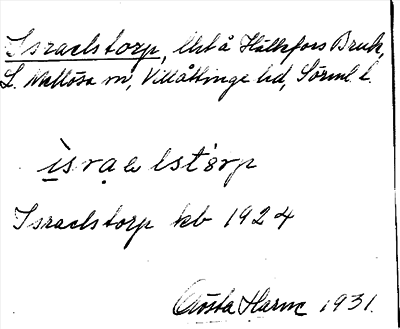 Israelstorp, lht å Hällefors Bruk,
L. Mellösa sn, Villåttinge hd, Sörml. l.
ìsra̤el stórp
Israelstorp kb 1924
Gösta Harve 1931.